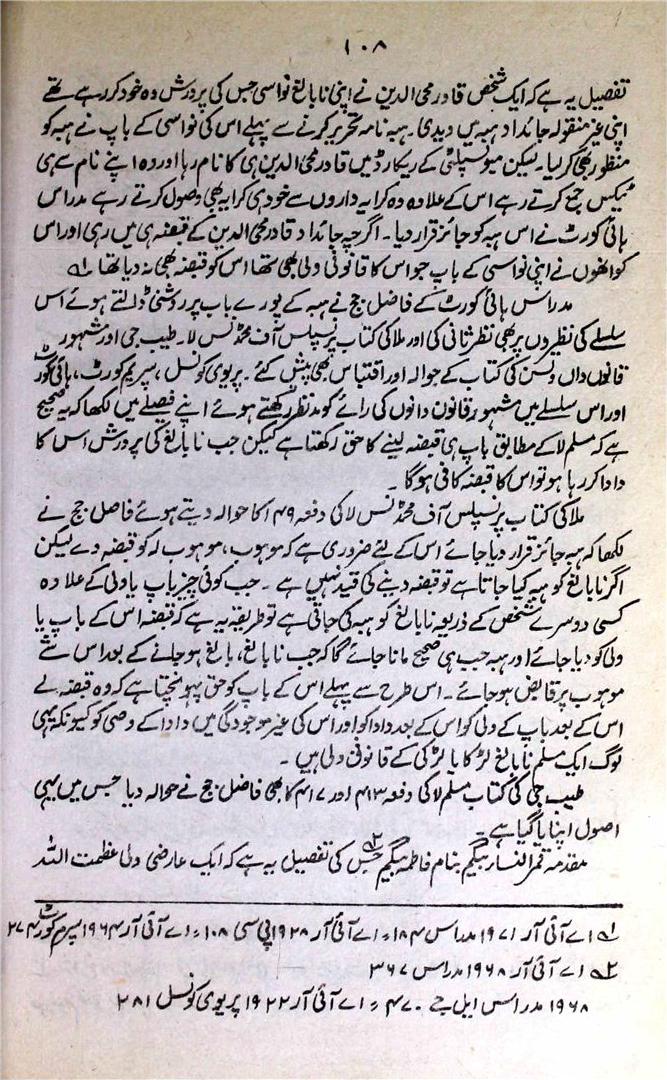 ۱۰۸
تفصیل یہ ہے کہ ایک شخص قادر محی الدین نے اپنی نابالغ نواسی جس کی پرورش وہ خود کر رہے تھے
اپنی غیر منقولہ جائداد ہبہ میں دیدی۔ ہبہ نامہ تحریر کرنے سے پہلے اس کی نواسی کے باپ نے ہبہ کو
منظور بھی کر لیا۔ لیکن میونسپلٹی کے ریکارڈ میں قادر محی الدین ہی کا نام رہا اور وہ اپنے نام سے ہی
ٹیکس جمع کرتے رہے اس کے علاوہ وہ کرایہ داروں سے خود ہی کرایہ بھی وصول کرتے رہے مدراس
ہائی کورٹ نے اس ہبہ کو جائز قرار دیا۔ اگرچہ جائداد قادر محی الدین کے قبضہ ہی میں رہی اور اس
کو انھوں نے اپنی نواسی کے باپ جو اس کا قانونی ولی بھی تھا اس کو قبضہ بھی نہ دیا تھا ۱؎
مدراس ہائی کورٹ کے فاضل جج نے ہبہ کے پورے باب پر روشنی ڈالتے ہوئے اس
سلسلے کی نظیروں پر بھی نظر ثانی کی اور ملا کی کتاب پرنسپلس آف محمڈنس لا۔ طیب جی اور مشہور
قانون داں ولسن کی کتاب کے حوالہ اور اقتباس بھی پیش کئے۔ پریوی کونسل، سپریم کورٹ، ہائی کورٹ
اور اس سلسلے میں مشہور قانون دانوں کی رائے کو مد نظر رکھتے ہوئے اپنے فیصلے میں لکھا کہ یہ صحیح
ہے کہ مسلم لا کے مطابق باپ ہی قبضہ لینے کا حق رکھتا ہے لیکن جب نابالغ کی پرورش اس کا
دادا کر رہا ہو تو اس کا قبضہ کافی ہو گا۔
ملا کی کتاب پرنسپلس آف محمڈنس لا کی دفعہ ۱۴۹ کا حوالہ دیتے ہوئے فاضل جج نے
لکھا کہ ہبہ جائز قرار دیا جائے اس کے لئے ضروری ہے کہ موہوب، موہوب لہ کو قبضہ دے لیکن
اگر نابالغ کو ہبہ کیا جاتا ہے تو قبضہ دینے کی قید نہیں ہے ۔ جب کوئی چیز باپ یا ولی کے علاوہ
کسی دوسرے شخص کے ذریعہ نابالغ کو ہبہ کی جاتی ہے تو طریقہ یہ ہے کہ قبضہ اس کے باپ یا
ولی کو دیا جائے اور ہبہ جب ہی صحیح مانا جائے گا کہ جب نابالغ، بالغ ہو جانے کے بعد اس شئے
موہوب پر قابض ہو جائے۔ اس طرح سے پہلے اس کے باپ کو حق پہونچتا ہے کہ وہ قبضہ لے
اس کے بعد باپ کے ولی کو اس کے بعد دادا کو اور اس کی غیر موجودگی میں دادا کے وصی کو کیونکہ یہی
لوگ ایک مسلم نابالغ لڑکا یا لڑکی کے قانونی ولی ہیں ۔
طیب جی کی کتاب مسلم لا کی دفعہ ۴۱۳ اور ۴۱۷ کا بھی فاضل جج نے حوالہ دیا جس میں یہی
اصول اپنایا گیا ہے۔
مقدمہ قمر النساء بیگم بنام فاطمہ بیگم ۲؎ جس کی تفصیل یہ ہے کہ ایک عارضی ولی عظمت اللہ
۱؎ اے آئی آر ۱۹۷۱ مدراس ۱۸۴، اے آئی آر ۱۹۲۸ پی سی ۱۰۸، اے آئی آر ۱۹۶۴ سپریم کورٹ ۲۷۴
۲؎ اے آئی آر ۱۹۶۸ مدراس ۳۶۷
۱۹۶۸ مدراس ایل جے ۴۷۰، اے آئی آر ۱۹۲۲ پریوی کونسل ۲۸۱